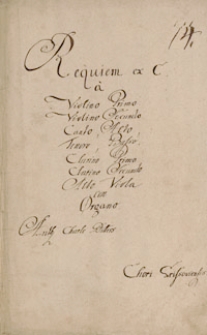 Requiem ex C
à
Violino Primo
Violino Secundo
Canto, Alto,
Tenor, Basso,
Clarino Primo
Clarino Secundo
Alto Viola
con
Organo
Chori